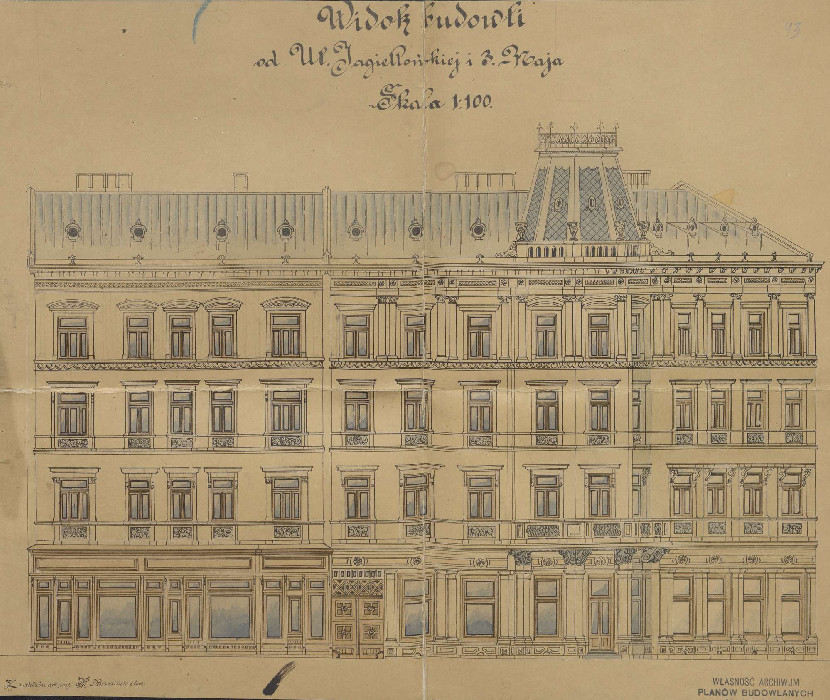 Widok budowli
od Ul. Jagiellońskiej i 3. Maja
Skala 1:100.
WŁASNOŚĆ ARCHIWUM
PLANÓW BUDOWLANYCH